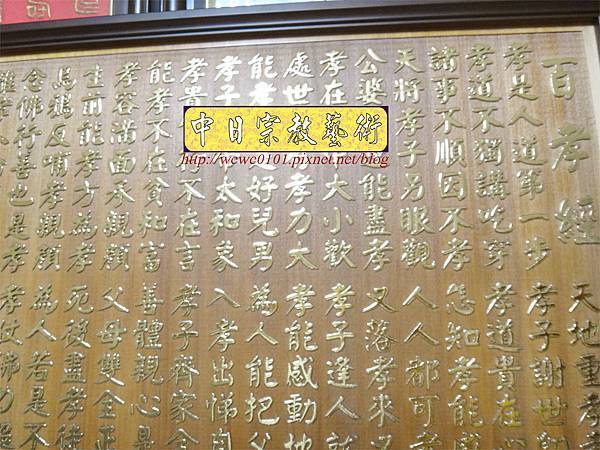 百孝經
天地重孝
孝是人道第一步 孝子謝世
孝道不獨講吃穿 孝道貴在心
諸事不順因不孝 怎知孝能感
天將孝子另眼觀 人人都可孝
公婆 能盡孝 又落孝來又
孝在 大小歡 孝子逢人就
處世 孝力大 孝能感動地
能孝 是好兒男 為人能把父
孝子 太和象 入孝出悌自
孝貴 不在言 孝子齊家全
能孝不在貧和富 善體親心是
孝容滿面承親顏 父母雙全正
生前能孝方為孝 死後盡孝徒
烏鴉反哺孝親顏 為人若是不
念佛行善也是孝 孝仗佛力
中日宗教藝術
http://wewc0101.pixnet.net/blog